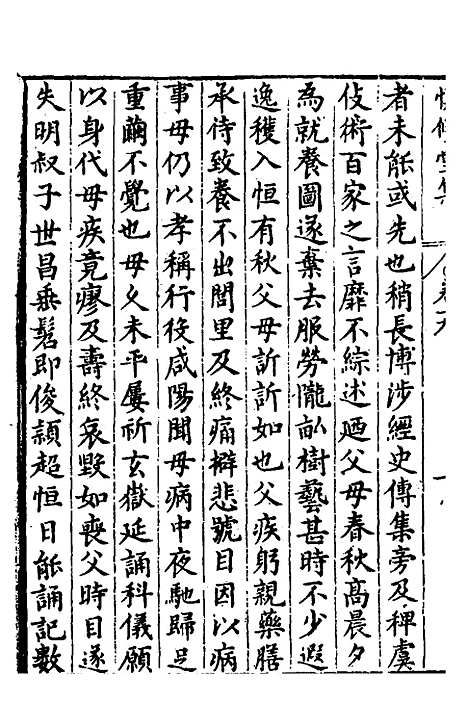 者未能或先也稍長博涉經史傳集旁及稗虞
伎術百家之言靡不綜述廼父母春秋高晨夕
為就養圖遂棄去服勞隴畝樹藝甚時不少遐
逸穫入恒有秋父母訢訢如也父疾躬親藥膳
承侍致養不出閭里及終痛擗悲號目因以病
事母仍以孝稱行役咸陽聞母病中夜馳歸足
重繭不覺也母久未平屢祈玄嶽延誦科儀願
以身代母疾竟瘳及壽終哀毀如喪父時目遂
失明叔子世昌垂髫即俊頴超恒日能誦記數